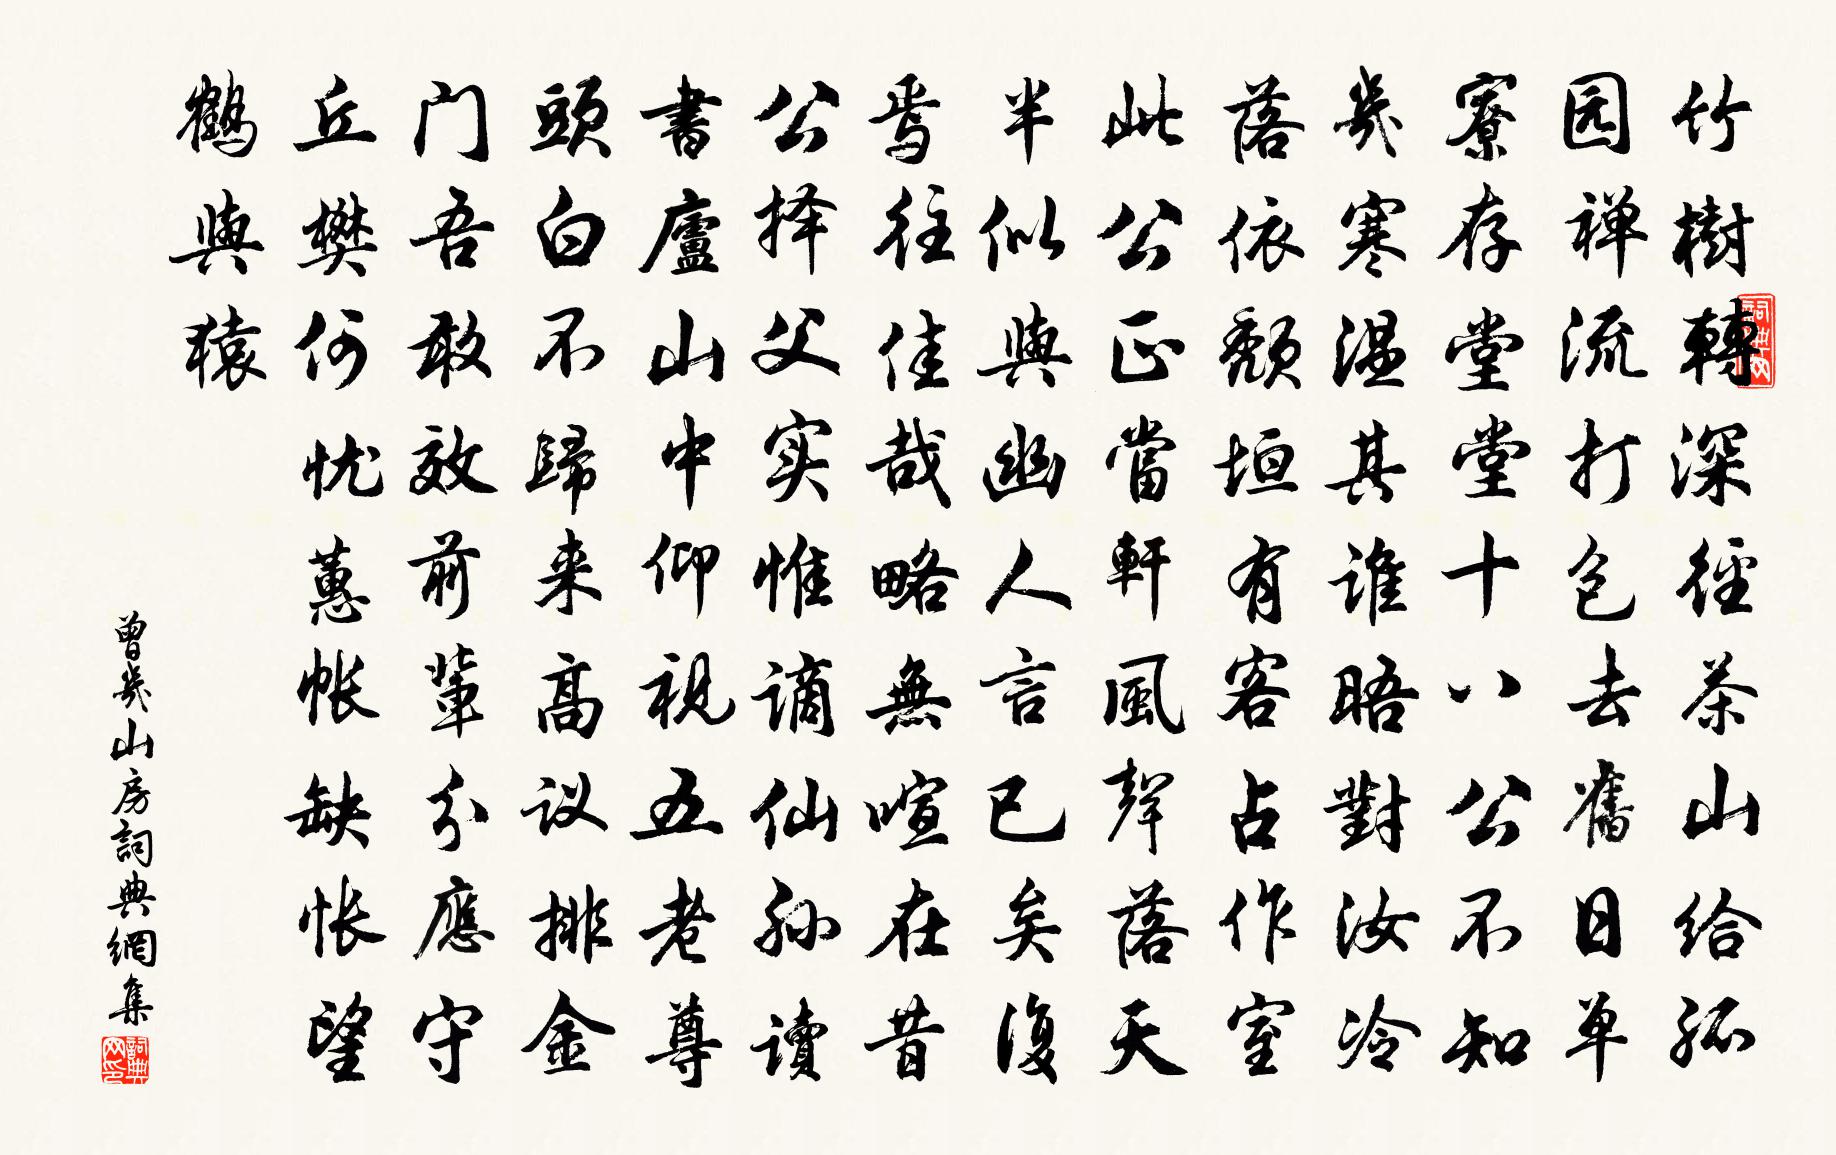 竹樹轉深徑茶山給孤
园禅流打包去舊日单
寮存堂堂十八公不知
幾寒温其谁晤對汝冷
落依颓垣有客占作室
此公正當軒風聲落天
半似與幽人言已矣復
焉往佳哉略無喧在昔
公择父实惟谪仙孙读
書廬山中仰视五老尊
頭白不歸来高议排金
门吾敢效前輩分應守
丘樊何忧蕙帐缺怅望
鶴與猿
曾幾山房詞典網集
詞典网
詞典网印